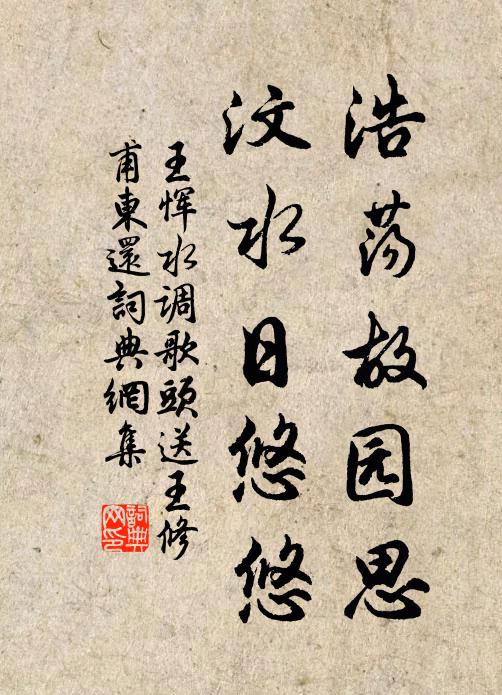 浩荡故园思
汶水日悠悠
王恽水调歌頭送王修
甫東還詞典網集
詞典网印